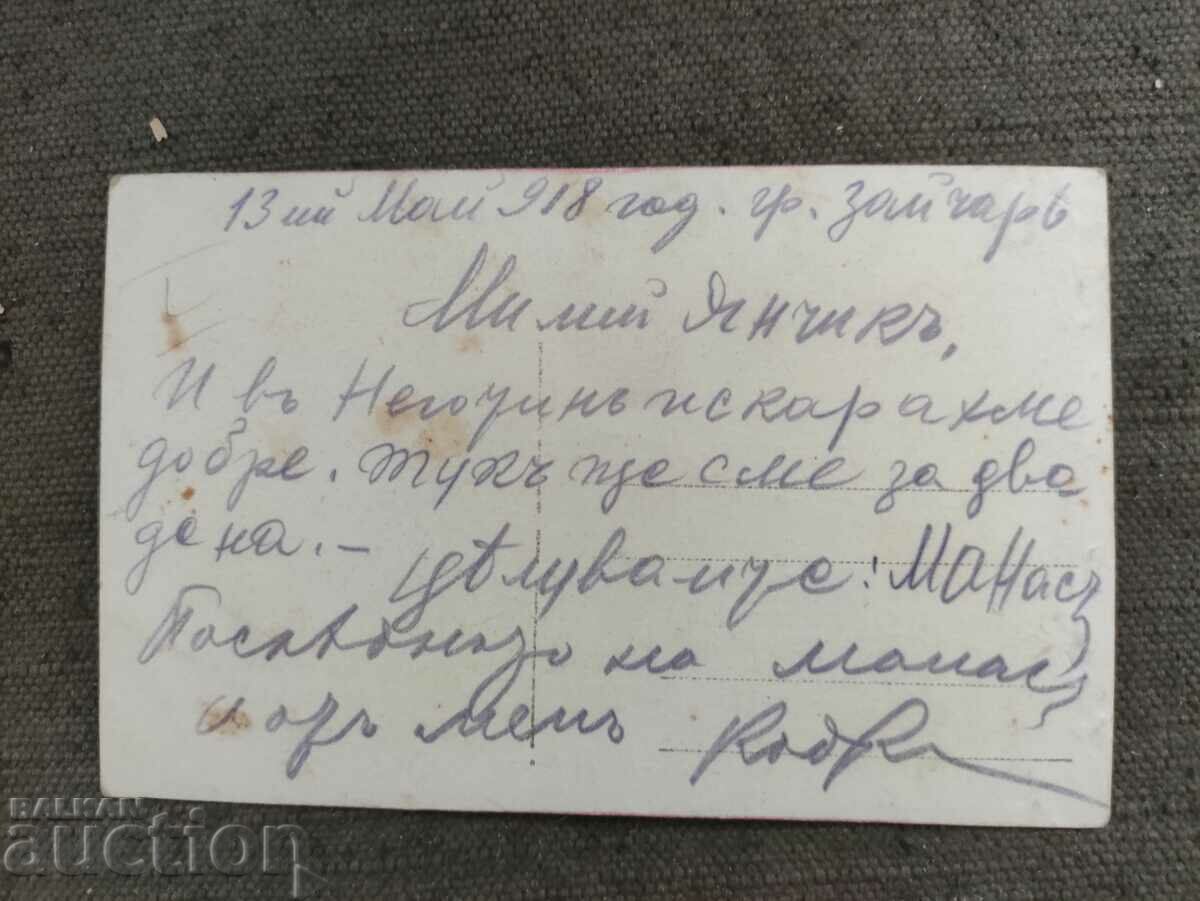 13ий Май 918 год. гр. Зайчаръ
Милий Янчикъ,
И въ Неготинъ искарахме
добре. Тукъ ще сме за два
дена. –
Цѣлувамъ: Манасъ
на Манас
и отъ менъ
BALKAN
auction